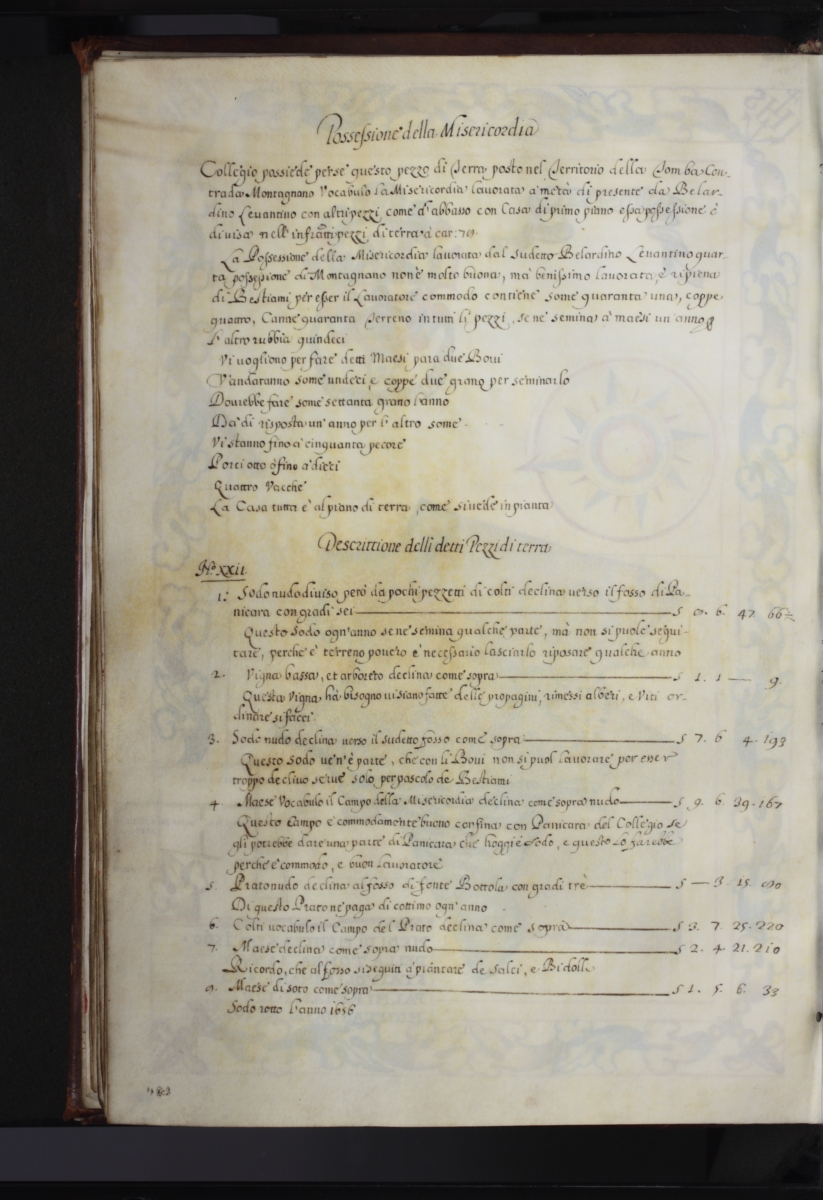 Possessione della Misericordia
Collegio possiede per se questo pezzo di Terra posto nel Territorio della Tomba Con-
trada Montagnano Vocabulo La Misericordia lavorata a metà di presente da Belar-
dino Levantino con altri pezzi come d'abbasso con Casa di primo piano essa possessione è
divisa nell'infratti pezzi di terra à car: 79.
La Possessione della Misericordia lavorata dal sudetto Belardino Levantino quar-
ta possessione di Montagnano non è molto buona, ma benissimo lavorata, è ripiena
di Bestiami per esser il Lavoratore commodo contiene some quaranta una, coppe
quattro, Canne quaranta Terreno in tutti li pezzi, se ne semina à maesi un anno p
l'altro rubbia quindeci
Vi vogliono per fare detti Maesi para due Bovi
V'andaranno some undeci, e coppe due grano per seminarlo
Dourebbe fare some settanta grano l'anno
Dà di risposta un'anno per l'altro some
Vi stanno fino a cinquanta pecore
Porci otto ò fino à dieci
Quattro Vacche
La Casa tutta è al piano di terra, come si vede in pianta
Descrittione delli detti Pezzi di terra
No. XXII
1: Sodo nudo diviso però da pochi pezzetti di colti declina verso il fosso di Pa-
nicara con gradi sei S 0. 6. 47. 66
Questo Sodo ogn'anno se ne semina qualche parte, mà non si puole sequi-
tare, perche è terreno povero è necessario lasciarlo riposare qualche anno
2. Vigna bassa, et arboreto declina come sopra S 1. 1 — 9.
Questa Vigna hà bisogno vi siano fatte delle propagini, rimessi alberi, e Viti or-
dinare si facci
3. Sodo nudo declina verso il sudetto fosso come sopra S 7. 6 4. 193
Questo Sodo ve n'è parte, che con li Bovi non si puol lavorare per esser
troppo declivo serve solo per pascolo de Bestiami
4. Maese Vocabulo il Campo della Misericordia declina come sopra nudo S 9. 6. 39. 167
Questo Campo è commodamente buono confina con Panicara del Collegio se
gli potrebbe dare una parte di Panicara che hoggi è Sodo, e questo lo farebbe
perche è commodo, e buon lavoratore
5. Prato nudo declina al fosso di fonte Bottola con gradi trè S — 3. 15. 090
Di questo Prato ne paga di cottimo ogn'anno
6. Colti vocabulo il Campo del Prato declina come sopra S 3. 7. 25. 220
7. Maese declina come sopra nudo S 2. 4. 21. 210
Ricordo, che al fosso si seguiti à piantare de Salci, e Bidolli
8. Maese di soto come sopra S 1. 5. 6. 33
Sodo rotto l'anno 1656